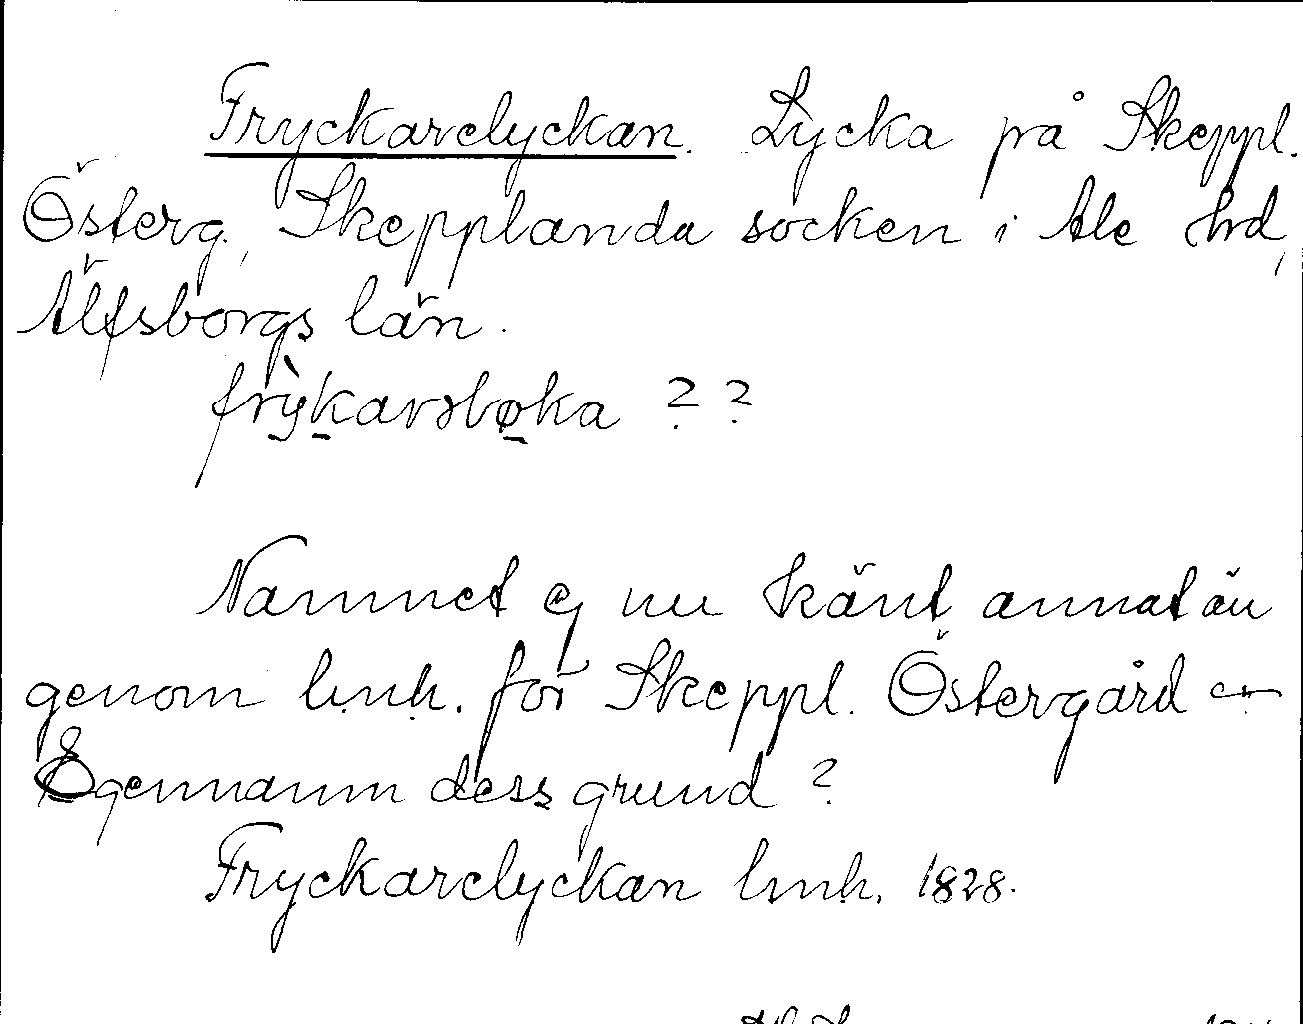 Fryckarelyckan. Lycka på Skeppl.
Österg., Skepplanda socken i Ale hrd,
Älfsborgs län.
?
Namnet ej nu känt annat än
genom lmh. för Skeppl. Östergård
Egennamn dess grund ?
Fryckarelyckan lmh. 1828.